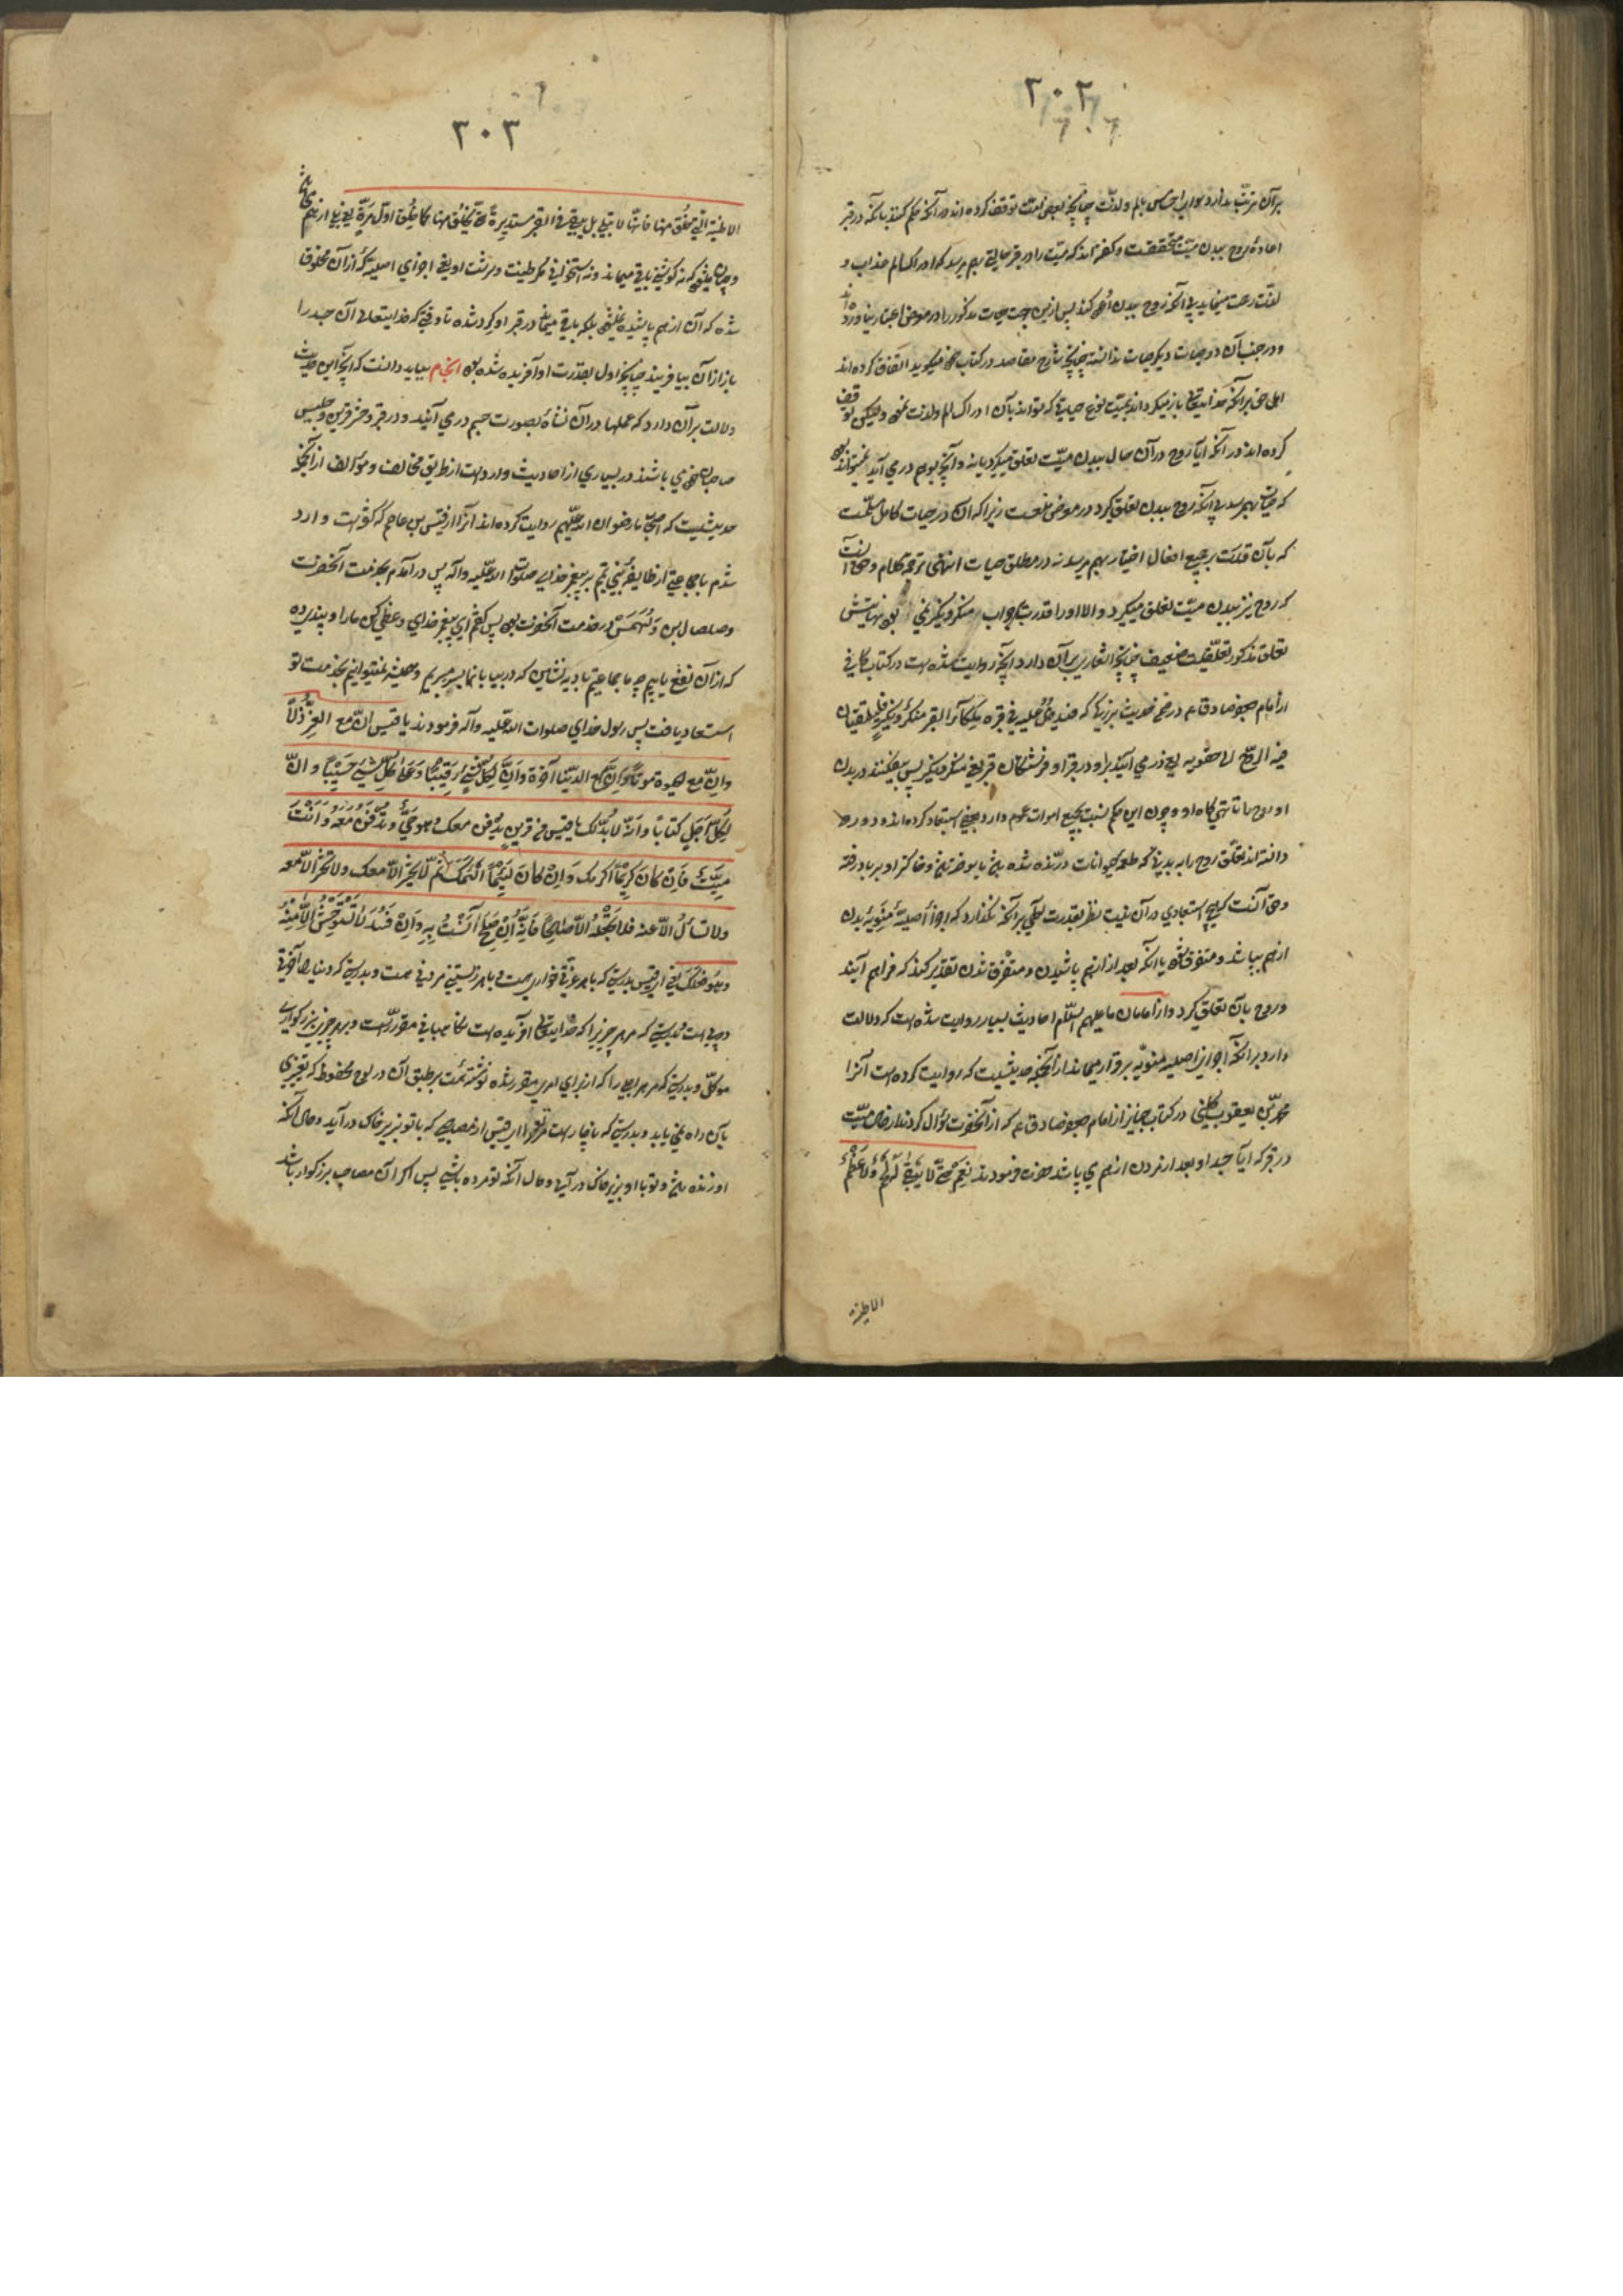 ۲۰۲
اعاده روح ببدن میّت متحققست و گفته‌اند که میّت را در قبر حالتی بهم میرسد که ادراک الم عذاب و
و در جنب آن دو حیات دیگر حیات ندانسته چنانچه شارح مقاصد در کتاب میگوید اتفاق کرده‌اند
کرده‌اند در آنکه آیا روح در آن حال ببدن میّت تعلق میگیرد یا نه و آنچه بوهم در می آید
که حیات بهم رسد بی آنکه روح ببدن تعلق گیرد در موضع منعست زیرا که آن در حیات کامل مسلّمست
که بآن قدرت بر جمیع افعال اختیار بهم میرسد نه در مطلق حیات انتهی ترجمة کلامه و حق آنست
که روح نیز ببدن میّت تعلق میگیرد و الا او را قدرت بجواب منکر و نکیر نمی بود نهایتش
تعلق مذکور تعلقیست ضعیف چنانچه اشعار بر آن دارد آنچه روایت شده است در کتاب کافی
از امام جعفر صادق ع در ضمن حدیث بزرگی که فیدخل علیه فی قبره ملکا القبر منکر و نکیر فیلقیان
فیه الروح الی حقویه یعنی در می آیند بر او در قبر او فرشتگان قبر یعنی منکر و نکیر پس میفکنند در بدن
او روح را تا تهیگاه او و چون این حکم نسبت بجمیع اموات عموم دارد بعضی استبعاد کرده‌اند و دور
دانسته‌اند تعلق روح را به بدنی که طعمه حیوانات درنده شده باشد یا سوخته باشد و خاکستر او بر باد رفته
و حق آنست که هیچ استبعادی در آن نیست نظر بقدرت الهی بر آنکه نگذارد که اجزاء اصلیّه منویّه بدن
از هم بپاشد و متفرق شود یا آنکه بعد از از هم پاشیدن و متفرق شدن تقدیر کند که فراهم آیند
و روح بآن تعلق گیرد و از امامان ما علیهم السّلم احادیث بسیار روایت شده است که دلالت
دارد بر آنکه اجزای اصلیه منویّه برقرار میماند از آنجمله حدیثیست که روایت کرده است آنرا
محمد بن یعقوب کلینی در کتاب جنایز از امام جعفر صادق ع که از آنحضرت سؤال کردند از حال میّت
در قبر که آیا جسد او بعد از مردن از هم می پاشد حضرت فرمودند نَعَمْ حَتّی لا یَبْقی لَحْمٌ وَلا عَظْمٌ
الا طینة
۲۰۳
الا طینته الّتی خُلِق منها فانّها لا تبلی بل یبقی فی القبر مستدیرةً حتّی یُخْلَق منها کما خُلِق اوّل مرّةٍ یعنی بلی از هم
شده که آن از هم پاشیده نمیشود بلکه باقی میماند در قبر او گرد شده تا وقتی که خدایتعالی آن جسد را
باز از آن بیافریند چنانچه اول بقدرت او آفریده شده بود انجام بباید دانست که آنچه این حدیث
دلالت بر آن دارد که عملها در آن نشأه بصورت جسم در می آیند و در قبر و حشر قرین و جلیس
صاحب خود می باشند در بسیاری از احادیث وارد است از طریق مخالف و مؤالف از آنجمله
حدیثیست که اصحاب ما رضوان الله علیهم روایت کرده‌اند آنرا از قیس بن عاصم که گفته است وارد
شدم با جماعتی از طایفه بنی تمیم بر پیغمبر خدای صلوات الله علیه وآله پس در آمدم بخدمت آنحضرت
و صلصال بن دَلَهْمَس در خدمت آنحضرت بود پس گفتم ای پیغمبر خدای وعظی کن ما را و پندی ده
که از آن نفع یابیم چه ما جماعتیم بادیه نشین که در بیابانها بسر میبریم و همیشه نمیتوانیم بخدمت تو
استسعاد یافت پس رسول خدای صلوات الله علیه وآله فرمودند یا قیس انّ مع العِزِّ ذُلّاً
وانّ مع الحیوة موتاً وَاِنَّ مَعَ الدنیا آخرةً وَاِنَّ لِکُلِّ شَیْءٍ رَقِیباً وَعَلی کُلِّ شَیْءٍ حَسِیباً و انّ
لِکُلِّ اَجَلٍ کتاباً وانّه لا بدّ لک یا قیس من قرینٍ یُدْفَن معک وهو حَیٌّ و تُدْفَنُ مَعَهُ وَ اَنْتَ
مَیِّتٌ فَاِن کان کریماً اکرمک وَ اِنْ کان لَئِیماً اَسْلَمَکَ ثم لا یُحْشَرُ الّا معک ولا تُحْشَرُ الّا معه
ولا تُسْأَلُ الّا عنه فلا تجعله الّا صالحاً فَاِنَّه اِنْ صَلَحَ آنَسْتَ بِهِ وَ اِنْ فَسَدَ لا تَسْتَوْحِشُ اِلّا مِنْهُ
وهو فعلک یعنی ای قیس بدرستی که با هر عزتی خواری هست و با هر زیستنی مردنی هست و بدرستی که دنیا را آخرتی
موکّل و بدرستی که هر اجلی را که از برای امری مقرر شده نوشته‌ئیست بر طبق آن در لوح محفوظ که تغییری
بآن راه نمی یابد و بدرستی که ناچار است مر ترا ای قیس از مصاحبی که با تو بزیر خاک در آید و حال آنکه
او زنده باشد و تو با او بزیر خاک در آیی و حال آنکه تو مرده باشی پس اگر آن مصاحب بزرگوار باشد